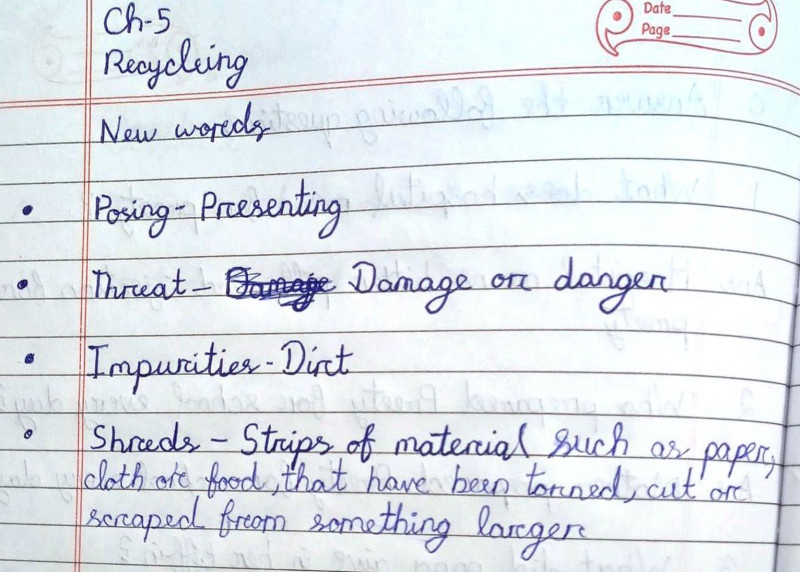 Date
Page
Ch-5
Recycleing
New words
Posing - Presenting
Threat - Damage Damage or danger
Impurities - Dirt
Shreds - Strips of material such as paper,
cloth or food, that have been torned, cut or
scraped from something larger